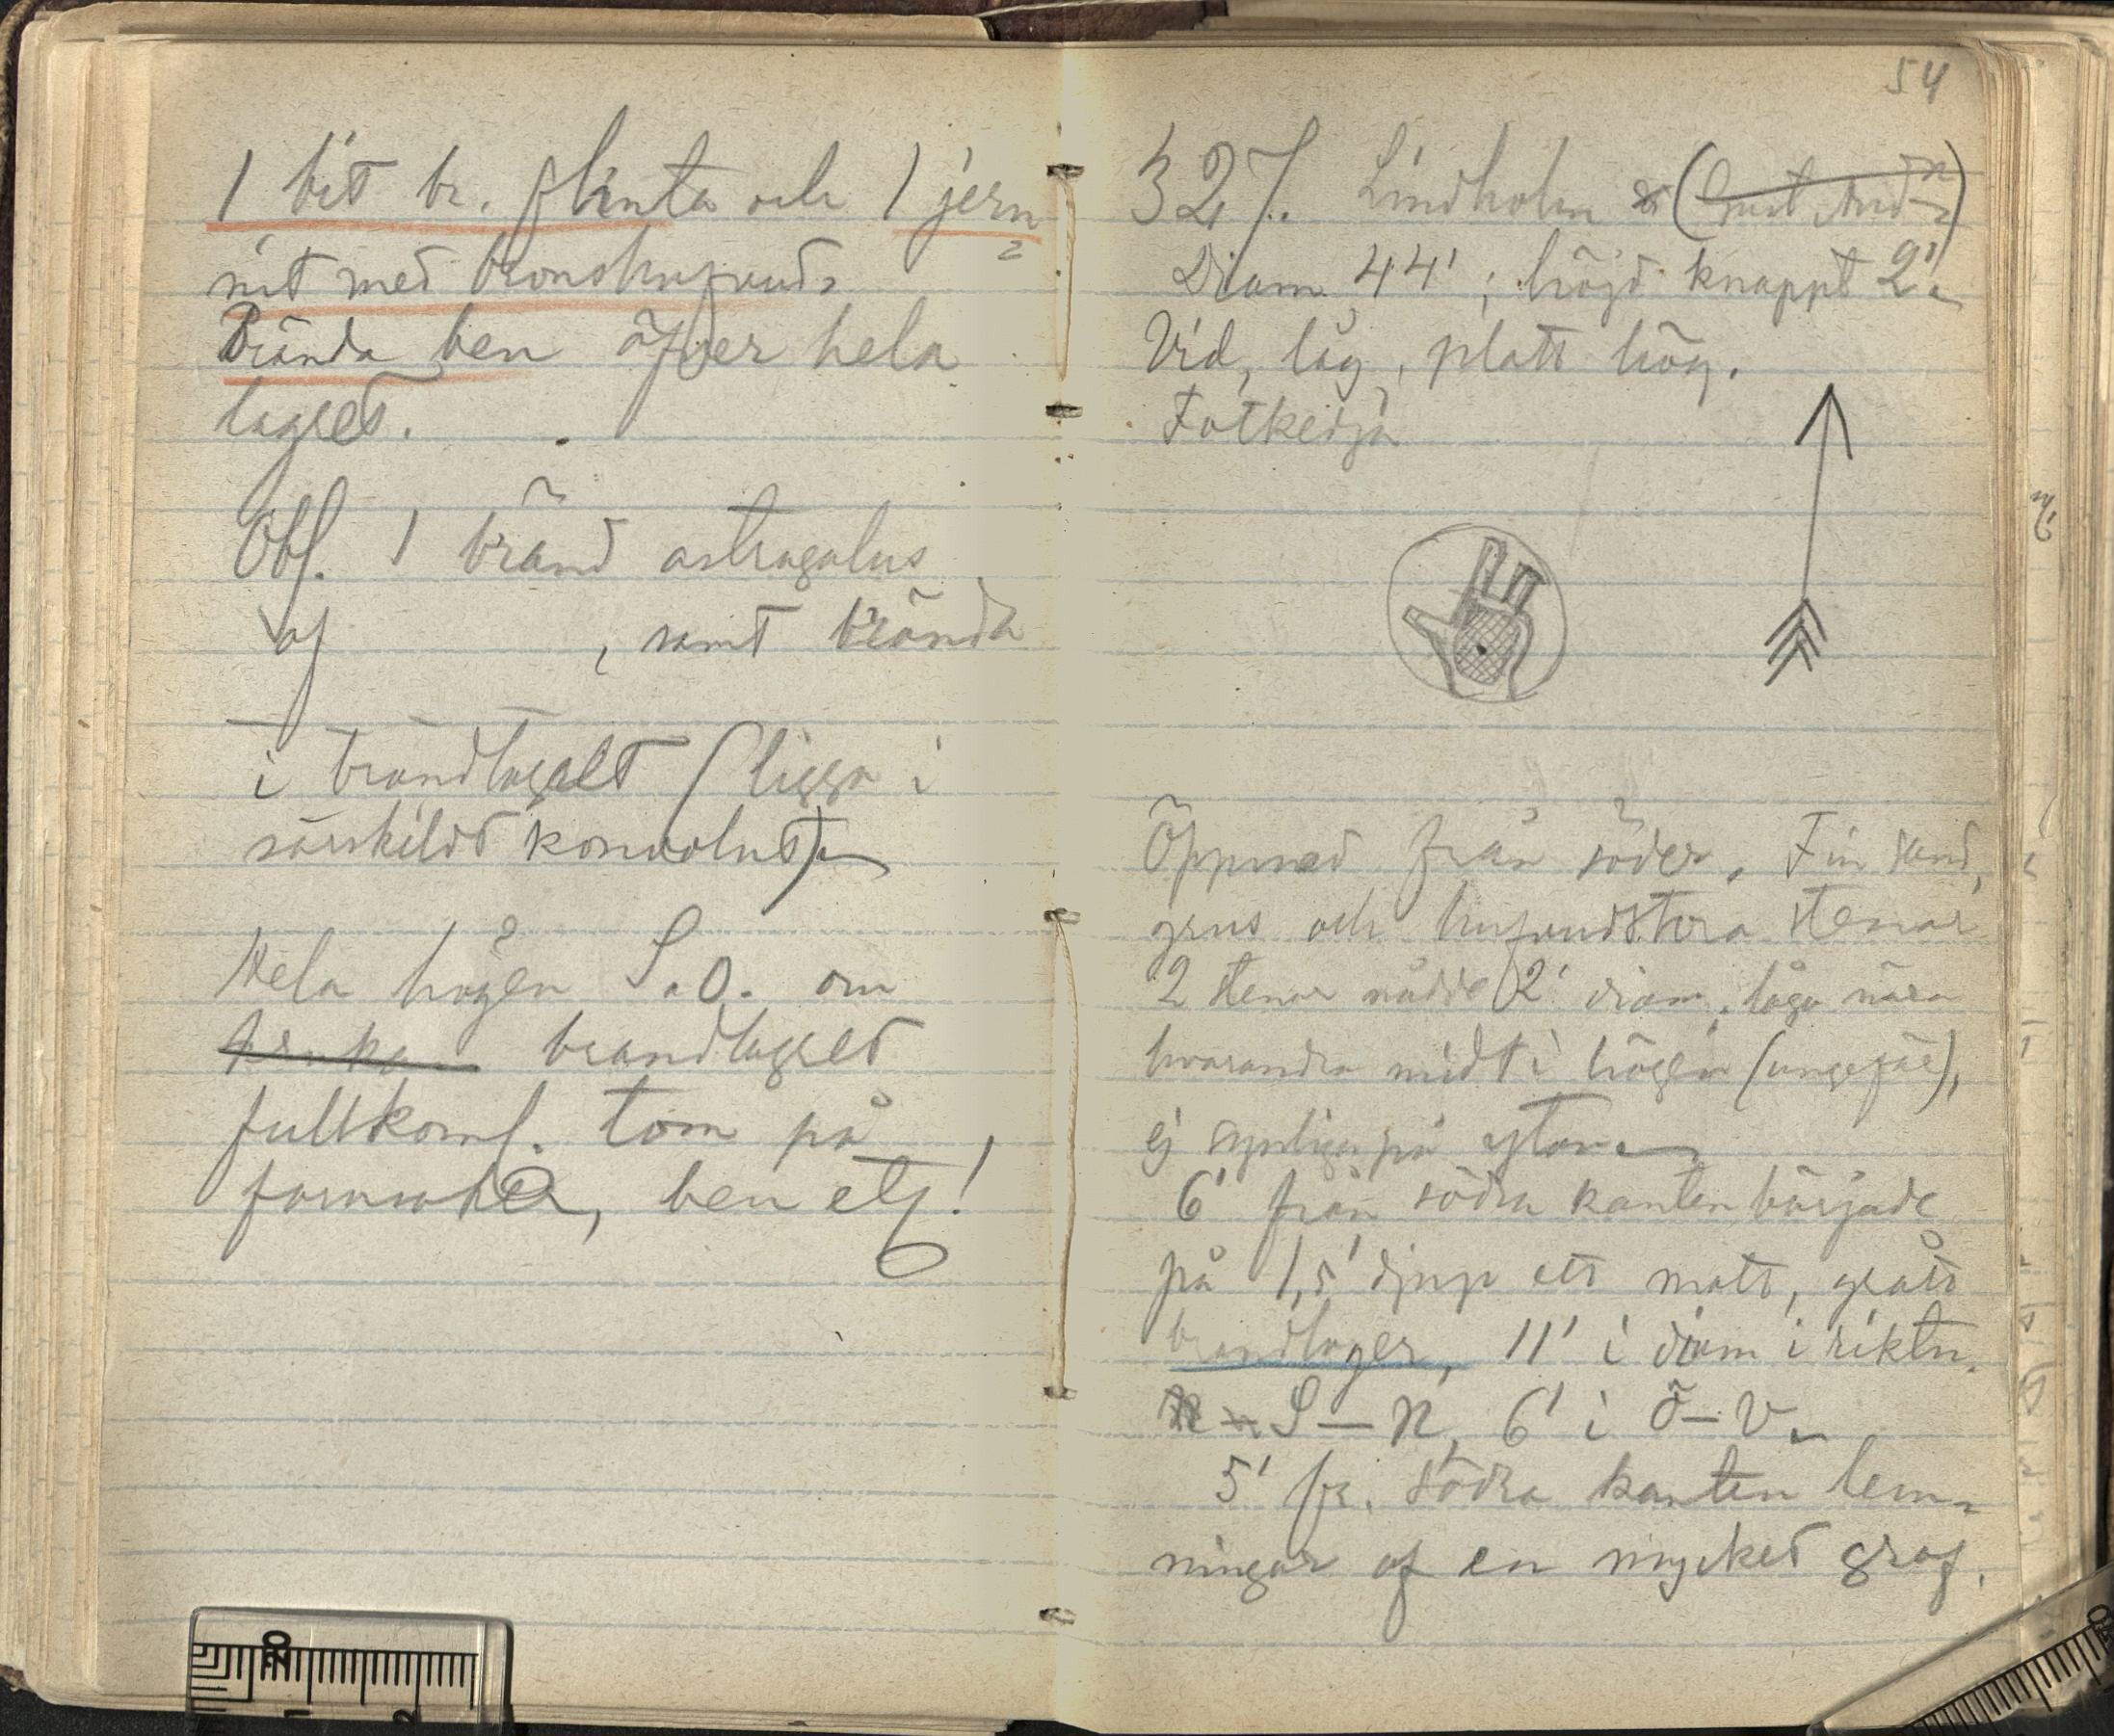 1 bit br. flinta och 1 jern
nit med bronshufvud.
Brända ben öfver hela
lagret.
Obs. 1 bränd astragalus
af , samt brända
i brandlagret (ligga i
särskildt konvolut).
Hela högen S.O. om
brandlagret
fullkoml. tom på
fornsaker, ben etc!
54
327. Lindholm
Diam. 44'; höjd knappt 2'.
Vid, låg, platt hög.
Fotkedja
Öppnad från söder. Fin sand,
grus och hufvudstora stenar
2 stenar nådde 2' diam., låga nära
hvarandra midt i högen (ungefär),
ej synliga på ytan.
6' från södra kanten började
på 1,5' djup ett matt, grått
brandlager, 11' i diam i riktn.
S – N, 6' i Ö – V.
5' fr. södra kanten lem-
ningar af en mycket grof,